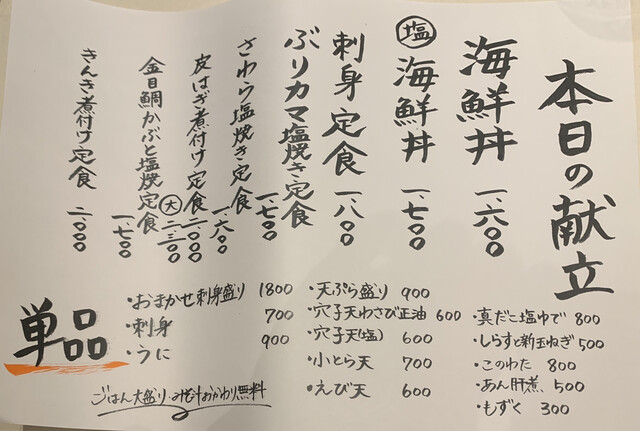 本日の献立
海鮮丼 一、六〇〇
塩 海鮮丼 一、七〇〇
刺身定食 一、八〇〇
ぶりカマ塩焼き定食 一、七〇〇
さわら塩焼き定食 一、六〇〇
皮はぎ煮付け定食 二、〇〇〇
大 二、三〇〇
金目鯛かぶと塩焼定食 一、七〇〇
きんき煮付け定食 二、〇〇〇
単品
・おまかせ刺身盛り 1800
・刺身 700
・うに 900
・天ぷら盛り 900
・穴子天わさび正油 600
・穴子天(塩) 600
・小とら天 700
・えび天 600
・真だこ塩ゆで 800
・しらすと新玉ねぎ 500
・このわた 800
・あん肝煮、500
・もずく 300
ごはん大盛り・みそ汁おかわり無料